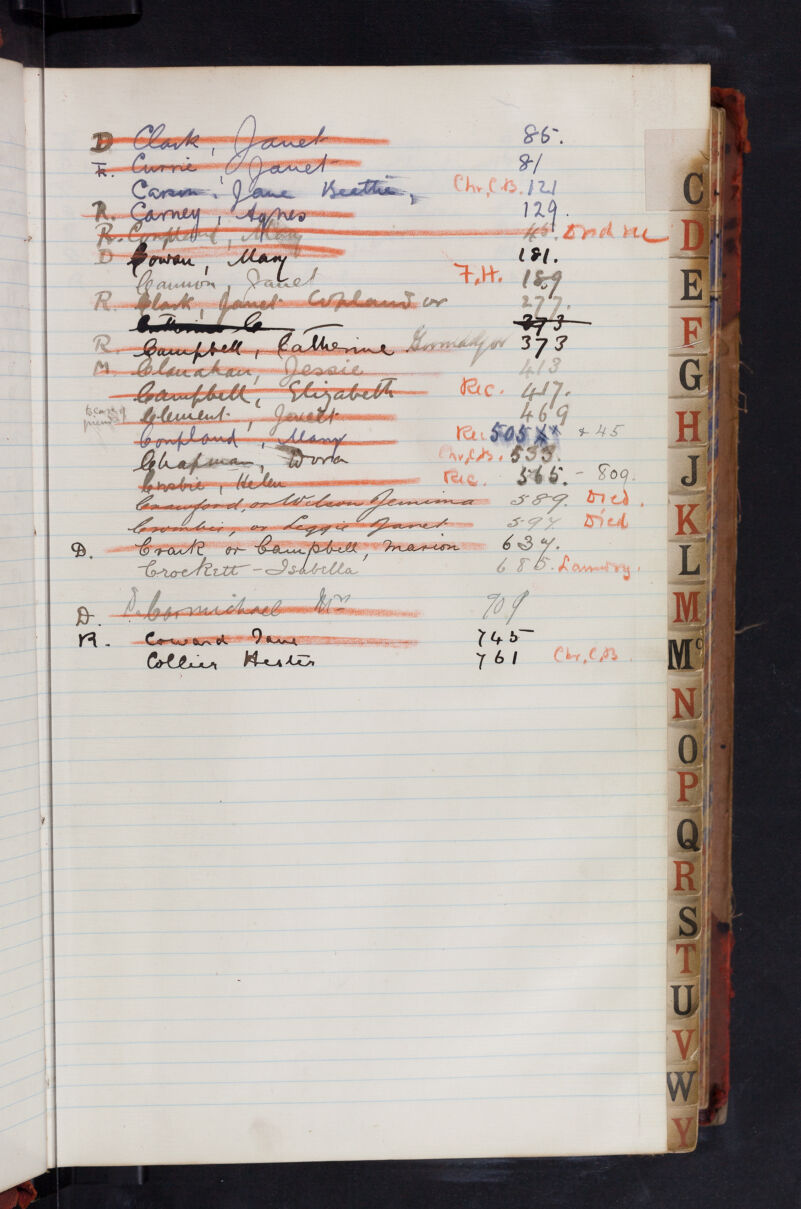 D Clark, Janet 85.
F. Currie, Janet 81
Carson, Jane Beattie, Chr, C.B. 121
R. Carney, Agnes 129.
R. Coupland, Mary 45.
D Cowan, Mary 181.
Cannon, Janet F.H. 189
R. Clark, Janet Copland or 277.
373
R. Campbell, Catherine or 373
M. Clanahan, Jessie 413
Campbell, Elizabeth Rec. 417.
Clement, Janet 469
Coupland, Mary Rec 505 + 45
Chapman, Dora Chr, C.B. 533.
Crosbie, Helen Rec. 565. - 809.
Crawford, or Wilson Jemima 589. Died.
Crombie, or Lizzie Janet 597 Died
D. Craik or Campbell, Marion 637.
Crockett - Isabella 685. Laundry.
D. Carmichael Mrs 709
R. Coward Jane 745
Collier Hester 761 Chr, C.B.
C
D
E
F
G
H
J
K
L
M
Mc
N
O
P
Q
R
S
T
U
V
W
Y